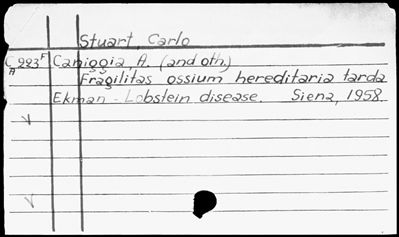 Stuart, Carlo
C223F Caniggia, A. (and oth.)
A
Fragilitas ossium hereditaria tarda
Ekman - Lobstein disease. Siena, 1958.